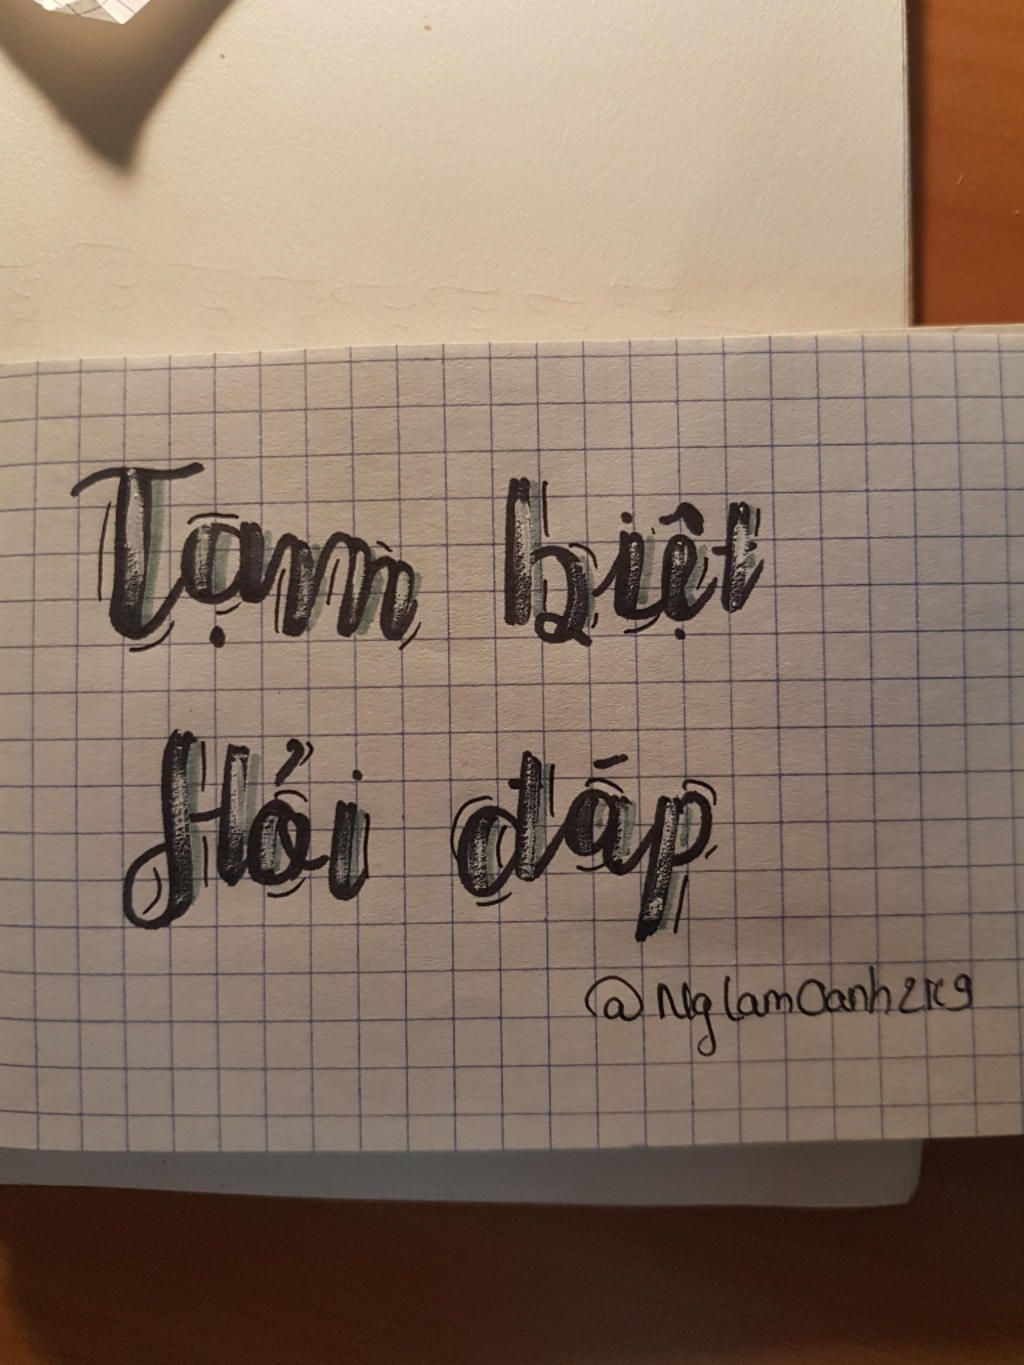 Tạm biệt
Hỏi đáp
@NglamOanh2k9